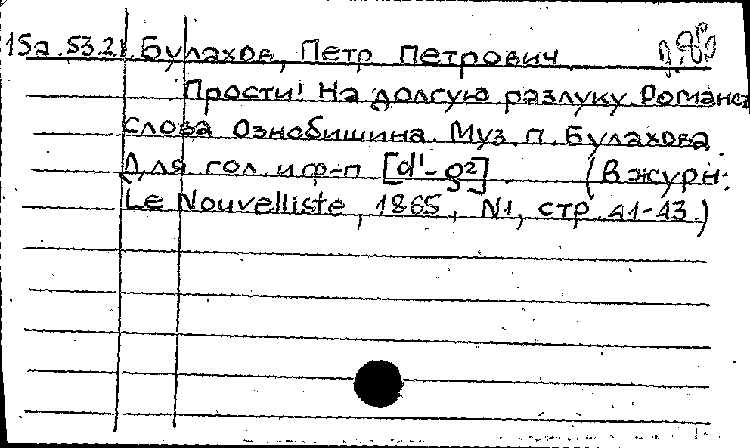 15а.53.2 Булахов, Петр Петрович
Прости! На долгую разлуку. Романс
Слова Ознобишина. Муз. П. Булахова.
Для гол. и ф-п [d¹-g²] (В журн.
Le Nouvelliste, 1865, N1, стр. 41-43.)